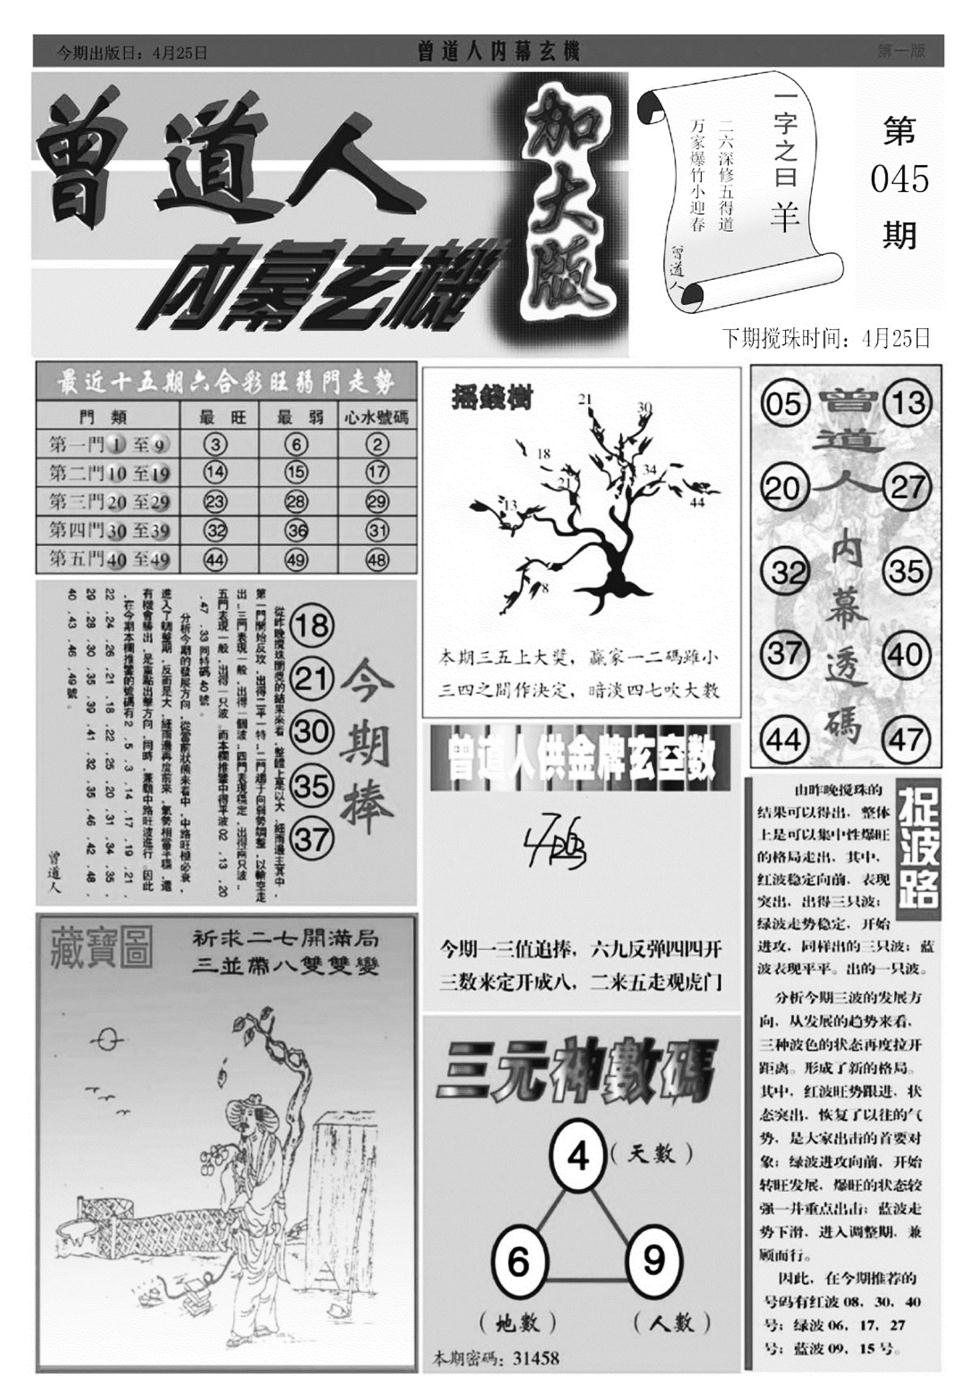 今期出版日：4月25日
曾道人内幕玄機
第一版
曾道人
内幕玄機
加大版
一字之曰 羊
二六深修五得道
万家爆竹小迎春
曾道人
第
045
期
下期搅珠时间：4月25日
最近十五期六合彩旺弱門走勢
門 類 最 旺 最 弱 心水號碼
第一門 1 至 9 3 6 2
第二門 10 至 19 14 15 17
第三門 20 至 29 23 28 29
第四門 30 至 39 32 36 31
第五門 40 至 49 44 49 48
搖錢樹
21
30
18
34
21
44
13
8
本期三五上大獎，贏家一二碼雖小
三四之間作決定，暗淡四七吹大數
曾道人内幕透碼
05 13
20 27
32 35
37 40
44 47
今期捧
18
21
30
35
37
從昨晚攪珠開獎的結果來看，整體上是以大、細兩邊主其中，
第一門開始反攻，出得二平一特，二門趨于向弱勢調整，以輪空走
出，三門表現一般，出得一個波，四門表現穩定，出得兩只波，
五門表現一般，出得一只波，而本欄推薦中得平波02．13．20
．47．33同特碼40號。
分析今期的發展方向，從當前狀態來看中，中路旺極必衰，
進入了調整期，反而是大，細兩邊再度前來，氣勢相當平穩，還
有機會勝出，是重點出擊方向，同時，兼顧中路旺波進行。因此
，在今期本欄推薦的號碼有2．5．3．14．17．19．21．
22．24．26．21．18．22．25．20．31．34．35．
29．28．30．35．39．41．32．35．46．42．48．
40．43．46．49號。
曾道人
曾道人供金牌玄空数
今期一三值追捧，六九反弹四四开
三数来定开成八，二来五走观虎门
捉波路
由昨晚搅珠的
结果可以得出，整体
上是可以集中性爆旺
的格局走出，其中，
红波稳定向前，表现
突出，出得三只波；
绿波走势稳定，开始
进攻，同样出的三只波；蓝
波表现平平。出的一只波。
分析今期三波的发展方
向，从发展的趋势来看，
三种波色的状态再度拉开
距离。形成了新的格局。
其中，红波旺势跟进，状
态突出，恢复了以往的气
势，是大家出击的首要对
象；绿波进攻向前，开始
转旺发展，爆旺的状态较
强一并重点出击；蓝波走
势下滑，进入调整期，兼
顾而行。
因此，在今期推荐的
号码有红波08，30，40
号；绿波06，17，27
号；蓝波09，15号。
藏寶圖
祈求二七開滿局
三並帶八雙雙變
三元神數碼
4
（天數）
6
9
（地數）
（人數）
本期密碼：31458